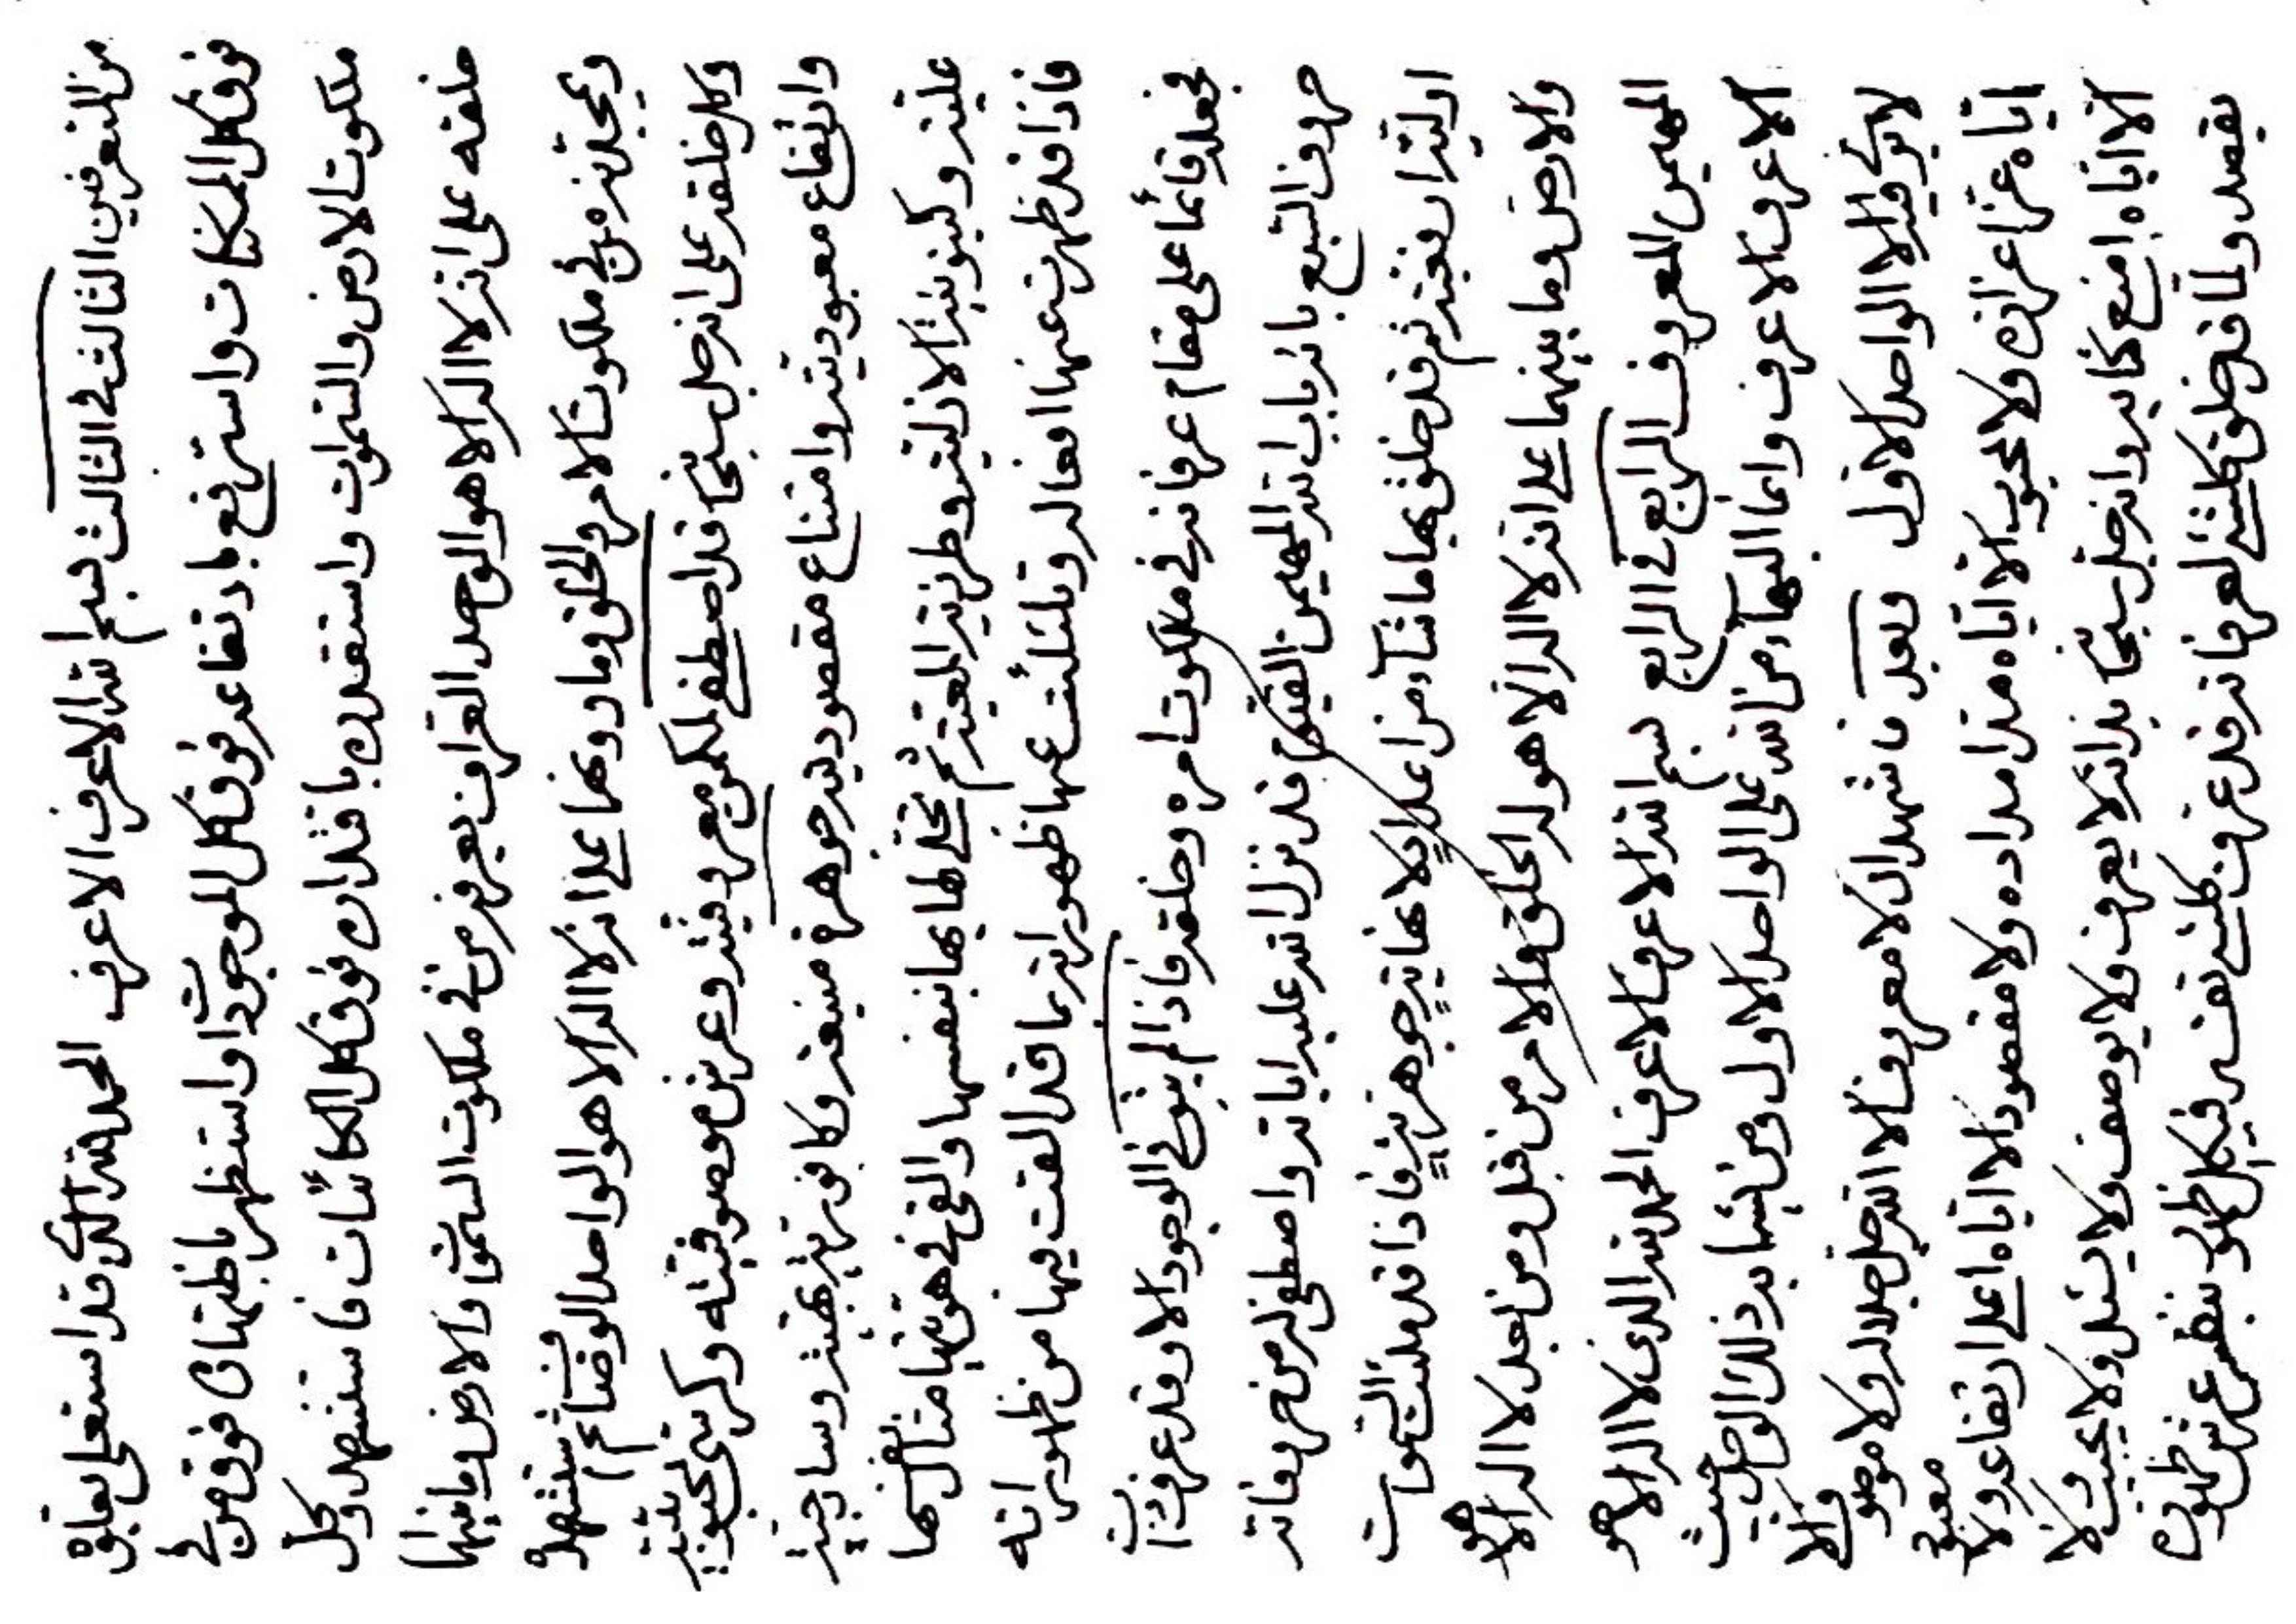 من المتعرفين الثالث فى الثالث بسم الله الاعرف الاعرف الحمد لله الذى قد استعلى بعلوه
فوق كل الممكنات واسترفع بارتفاعه فوق كل الموجودات واستظهر باظهاره فوق من فى
ملكوت الارض والسموات واستقدر باقتداره فوق كل الكائنات فاستشهده وكل
خلقه على انه لا اله الا هو الواحد العراف يعرفه من فى ملكوت السموات والارض وما بينهما
ويجلنه من فى ملكوت الامر والخلق وما دونهما على انه لا اله الا هو الواحد الوضاء ثم استشهده
وكل خلقه على انه جل سبحانه قد اصطفى لمكمن معروفيته وعرش موصوفيته وكرسى محبوبيته
وارتفاع معبوديته وامتناع مقصوديته جوهره منيعة وكافورية بهية وساذجية
علية وكينونية ازلية وطرزية المعية ثم تجلى لها بها بنفسها والقى فى هويتها مثال نفسها
فاذا قد ظهرت عنها افعاله وتلئلئت عنها ظهوراته بما قد القت فيها من ظهوراته
فجعله قائما على مقام عرفانه فى ملكوت امره وخلقه فاذا لم يبق فى الوجود الا وقد عرف
حروف السبع بانه باب الله المهيمن القيوم قد نزل الله عليه اياته واصطفى له من حروفاته
ازلية ان نعبد ثم قد خلق بها ما شاء من اعلا علا نهاية جوهرية فاذا قد ملئت السموات
والارض وما بينهما على انه لا اله الا هو له الخلق والامر من قبل ومن بعد لا اله الا هو
المهيمن المعروف الرابع فى الرابع بسم الله الاعرف الاعرف الحمد لله الذى لا اله الا هو
الاعرف الاعرف وانما البهاء من الله على الواحد الاول ومن يشابه ذلك الواحد حيث
لا يرى فيه الا الواحد الاول وبعد فاشهد ان لا معروف الا الله جل جلاله ولا موصوف الا
اياه عز اعزازه ولا محبوب الا اياه مد امداده ولا مقصود الا اياه اعلى ارتفاعه ولا معبود
الا اياه امنع كبريائه جل سبحانه انه لا يعرف ولا يوصف ولا يسئل ولا يجيب ولا
يقصد ولما قد خلق كلشىء لعرفانه قد عرف كلشىء نفسه فى كل ظهور بنفس عرش ظهوره